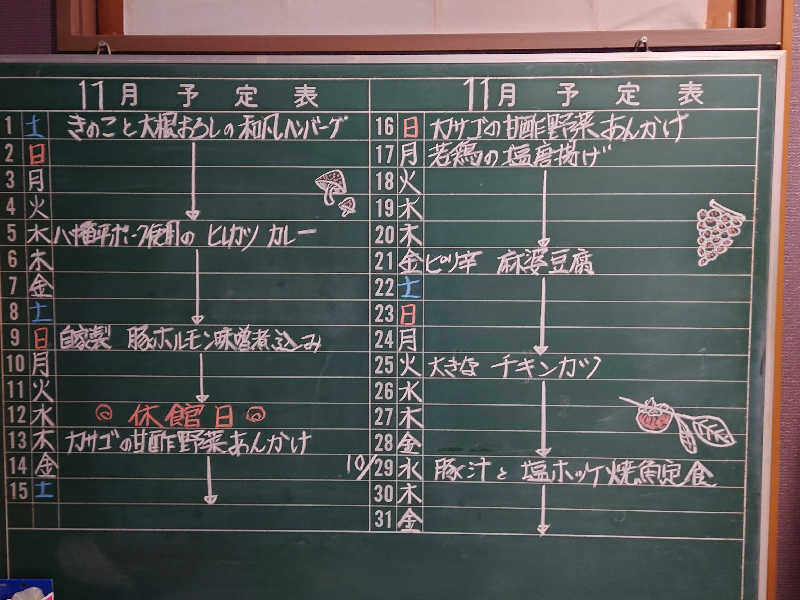 11月 予定表
1 土 きのこと大根おろしの和風ハンバーグ
2 日
3 月
4 火
5 水 八幡平ポーク使用の ヒレカツ カレー
6 木
7 金
8 土
9 日 自家製 豚ホルモン味噌煮込み
10 月
11 火
12 水 休館日
13 木 カサゴの甘酢野菜あんかけ
14 金
15 土
11月 予定表
16 日 カサゴの甘酢野菜あんかけ
17 月 若鶏の塩唐揚げ
18 火
19 水
20 木
21 金 ピリ辛 麻婆豆腐
22 土
23 日
24 月
25 火 大きな チキンカツ
26 水
27 木
28 金
10/29 水 豚汁と 塩ホッケ焼魚定食
30 木
31 金